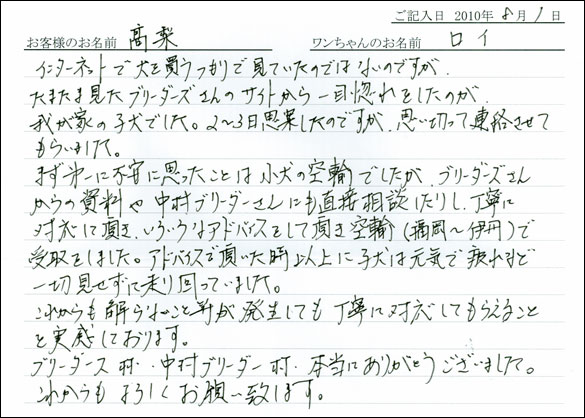 ご記入日 2010年 8月 1日
お客様のお名前 高梨 ワンちゃんのお名前 ロイ
インターネットで犬を買うつもりで見ていたのではないのですが、
たまたま見たブリーダーズさんのサイトから一目惚れをしたのが、
我が家の子犬でした。2〜3日思案したのですが、思い切って連絡させて
もらいました。
まず第一に不安に思ったことは小犬の空輸でしたが、ブリーダーズさん
からの資料や中村ブリーダーさんにも直接相談したりし、丁寧に
対応に頂き、いろいろなアドバイスをして頂き空輸(福岡〜伊丹)で
受取をしました。アドバイスで頂いた時以上に子犬は元気で疲れなど
一切見せずに走り回っていました。
これからも解らないこと等が発生しても丁寧に対応してもらえること
と実感しております。
ブリーダーズ 村・中村ブリーダー 村・本当にありがとうございました。
これからもよろしくお願い致します。